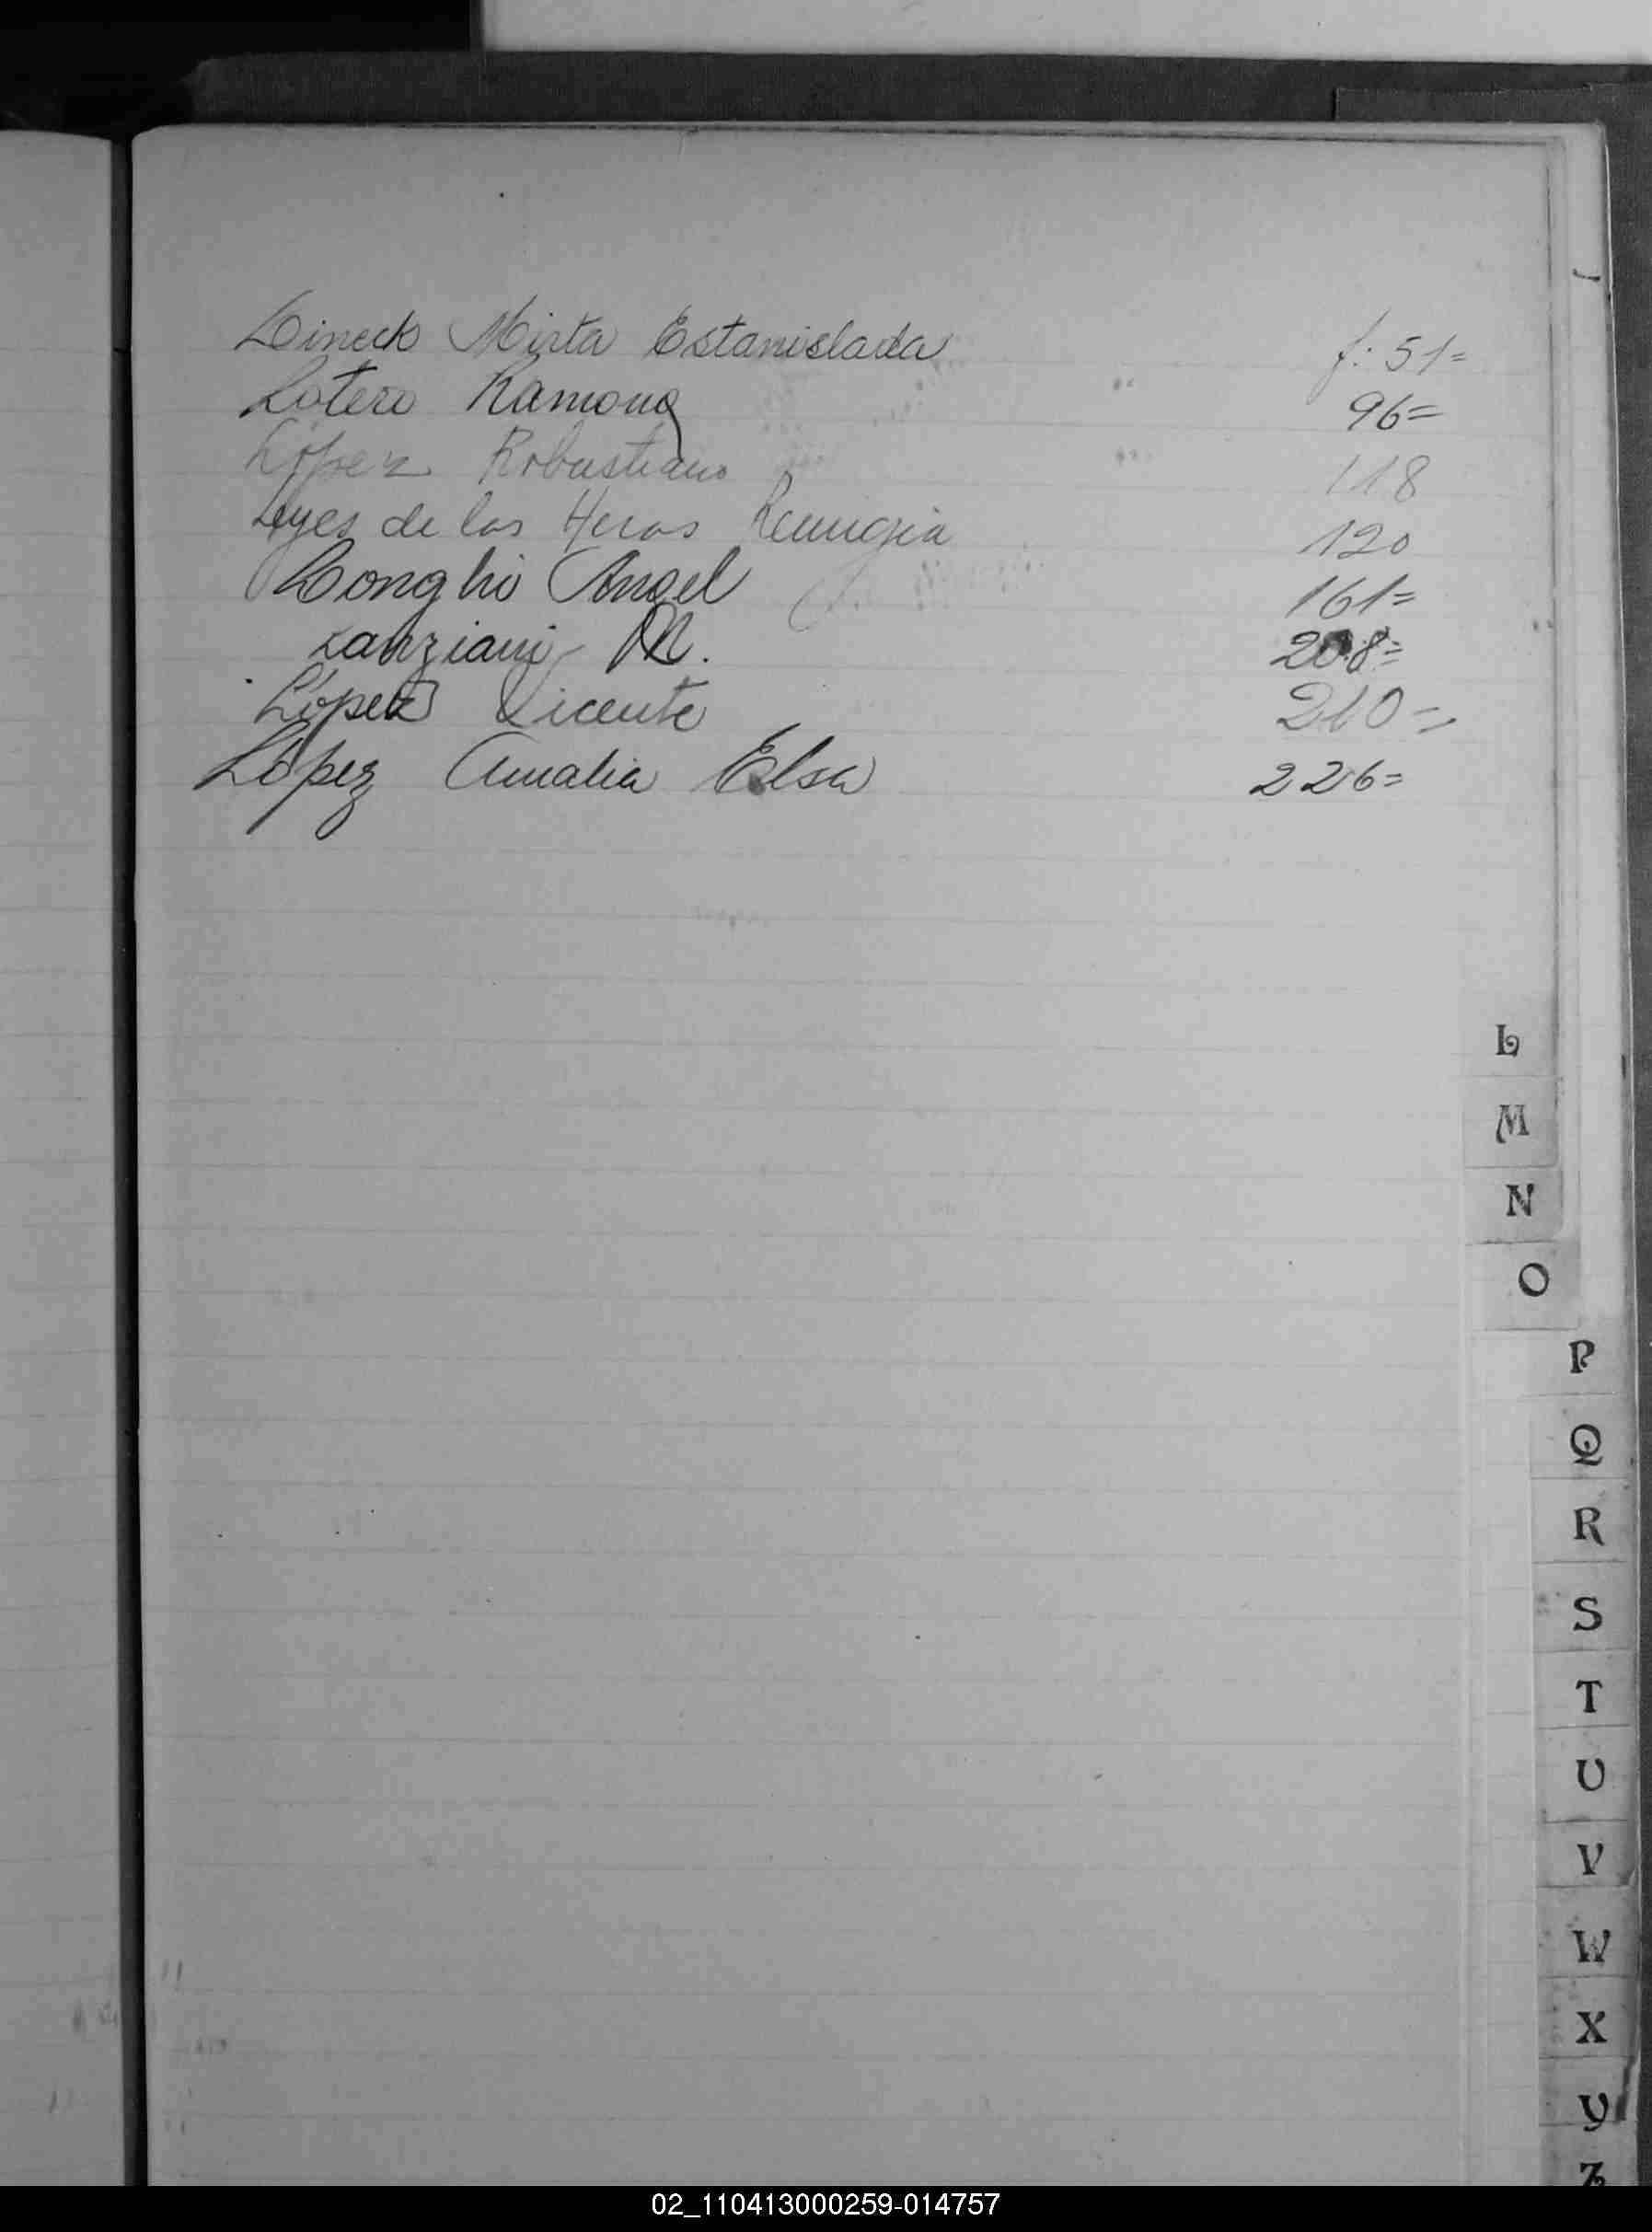 Lineck Mirta Estanislada f: 51=
Lotero Ramona 96=
López Robustiano 118
Leyes de las Heras Remigia 120
Longhi Angel 161=
Lanziani M. 208=
López Vicente 210=
López Amalia Elsa 226=
L
M
N
O
P
Q
R
S
T
U
V
W
X
Y
Z
02_110413000259-014757